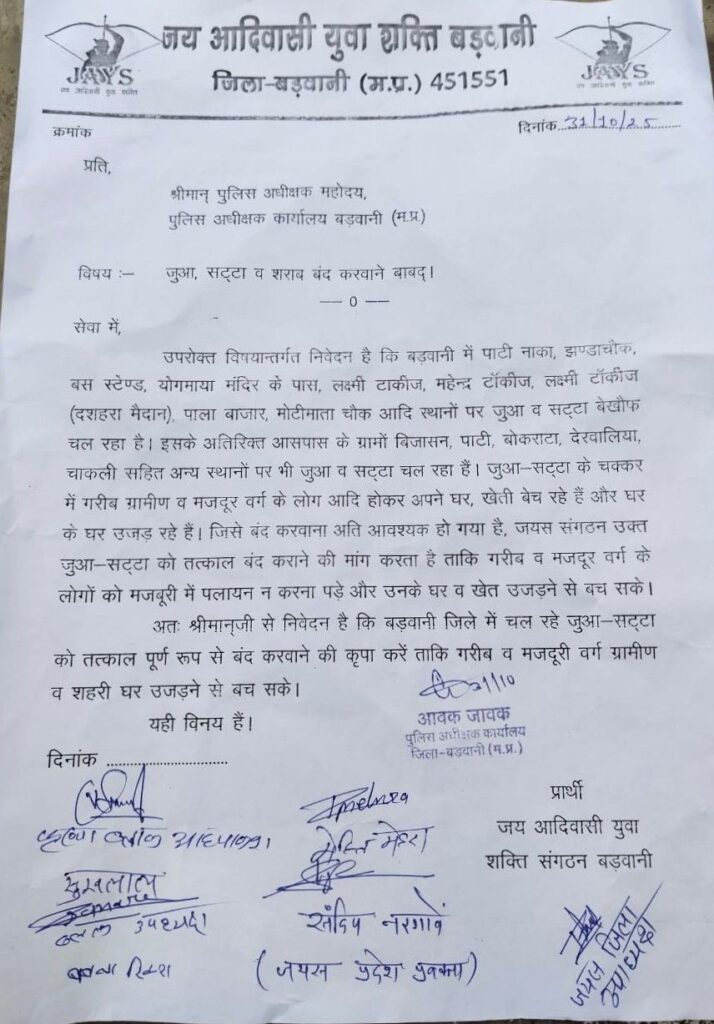 जय आदिवासी युवा शक्ति बड़वानी
जिला-बड़वानी (म.प्र.) 451551
JAYS
जय आदिवासी युवा शक्ति
JAYS
जय आदिवासी युवा शक्ति
क्रमांक
दिनांक 31/10/25
प्रति,
श्रीमान् पुलिस अधीक्षक महोदय,
पुलिस अधीक्षक कार्यालय बड़वानी (म.प्र.)
विषय :– जुआ, सट्टा व शराब बंद करवाने बाबद्।
—– 0 —–
सेवा में,
उपरोक्त विषयान्तर्गत निवेदन है कि बड़वानी में पाटी नाका, झण्डाचौक,
बस स्टेण्ड, योगमाया मंदिर के पास, लक्ष्मी टाकीज, महेन्द्र टॉकीज, लक्ष्मी टॉकीज
(दशहरा मैदान), पाला बाजार, मोटीमाता चौक आदि स्थानों पर जुआ व सट्टा बेखौफ
चल रहा है। इसके अतिरिक्त आसपास के ग्रामों बिजासन, पाटी, बोकराटा, देरवालिया,
चाकली सहित अन्य स्थानों पर भी जुआ व सट्टा चल रहा हैं। जुआ–सट्टा के चक्कर
में गरीब ग्रामीण व मजदूर वर्ग के लोग आदि होकर अपने घर, खेती बेच रहे हैं और घर
के घर उजड़ रहे हैं। जिसे बंद करवाना अति आवश्यक हो गया है, जयस संगठन उक्त
जुआ–सट्टा को तत्काल बंद कराने की मांग करता है ताकि गरीब व मजदूर वर्ग के
लोगों को मजबूरी में पलायन न करना पड़े और उनके घर व खेत उजड़ने से बच सके।
अतः श्रीमान्जी से निवेदन है कि बड़वानी जिले में चल रहे जुआ–सट्टा
को तत्काल पूर्ण रूप से बंद करवाने की कृपा करें ताकि गरीब व मजदूरी वर्ग ग्रामीण
व शहरी घर उजड़ने से बच सके।
यही विनय हैं।
31/10
आवक जावक
पुलिस अधीक्षक कार्यालय
जिला-बड़वानी (म.प्र.)
दिनांक ..............................
प्रार्थी
जय आदिवासी युवा
शक्ति संगठन बड़वानी
सुखलाल
उपध्यक्ष
संदिप नरगावे
(जयस प्रदेश प्रवक्ता)
जयस जिला